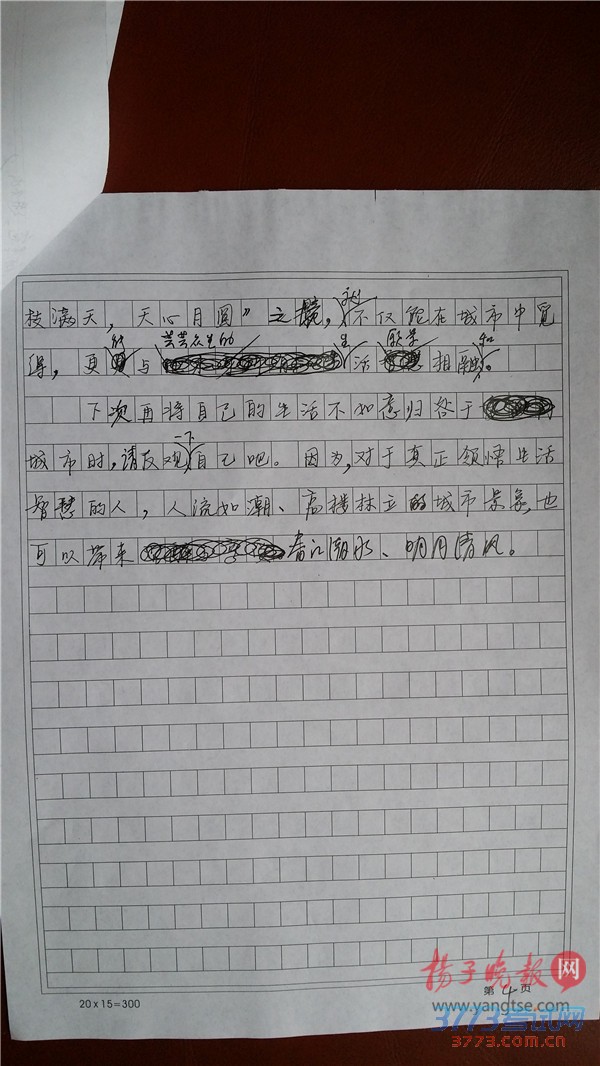 枝满天，天心月圆”之境，这不仅能在城市中觅
得，更能与芸芸众生的生活欣荣相融和。
下次再将自己的生活不如意归咎于
城市时，请反观一下自己吧。因为，对于真正领悟生活
智慧的人，人流如潮、高楼林立的城市景象，也
可以带来春江潮水、明月清风。
20×15=300
第4页
扬子晚报网
www.yangtse.com
3773考试网
3773.com.cn